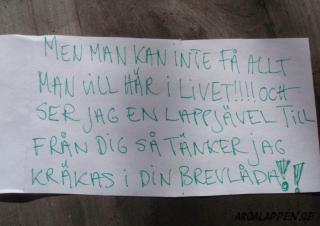 MEN MAN KAN INTE FÅ ALLT
MAN VILL HÄR I LIVET!!!! OCH
SER JAG EN LAPPJÄVEL TILL
FRÅN DIG SÅ TÄNKER JAG
KRÄKAS I DIN BREVLÅDA!!
ARGALAPPEN.SE